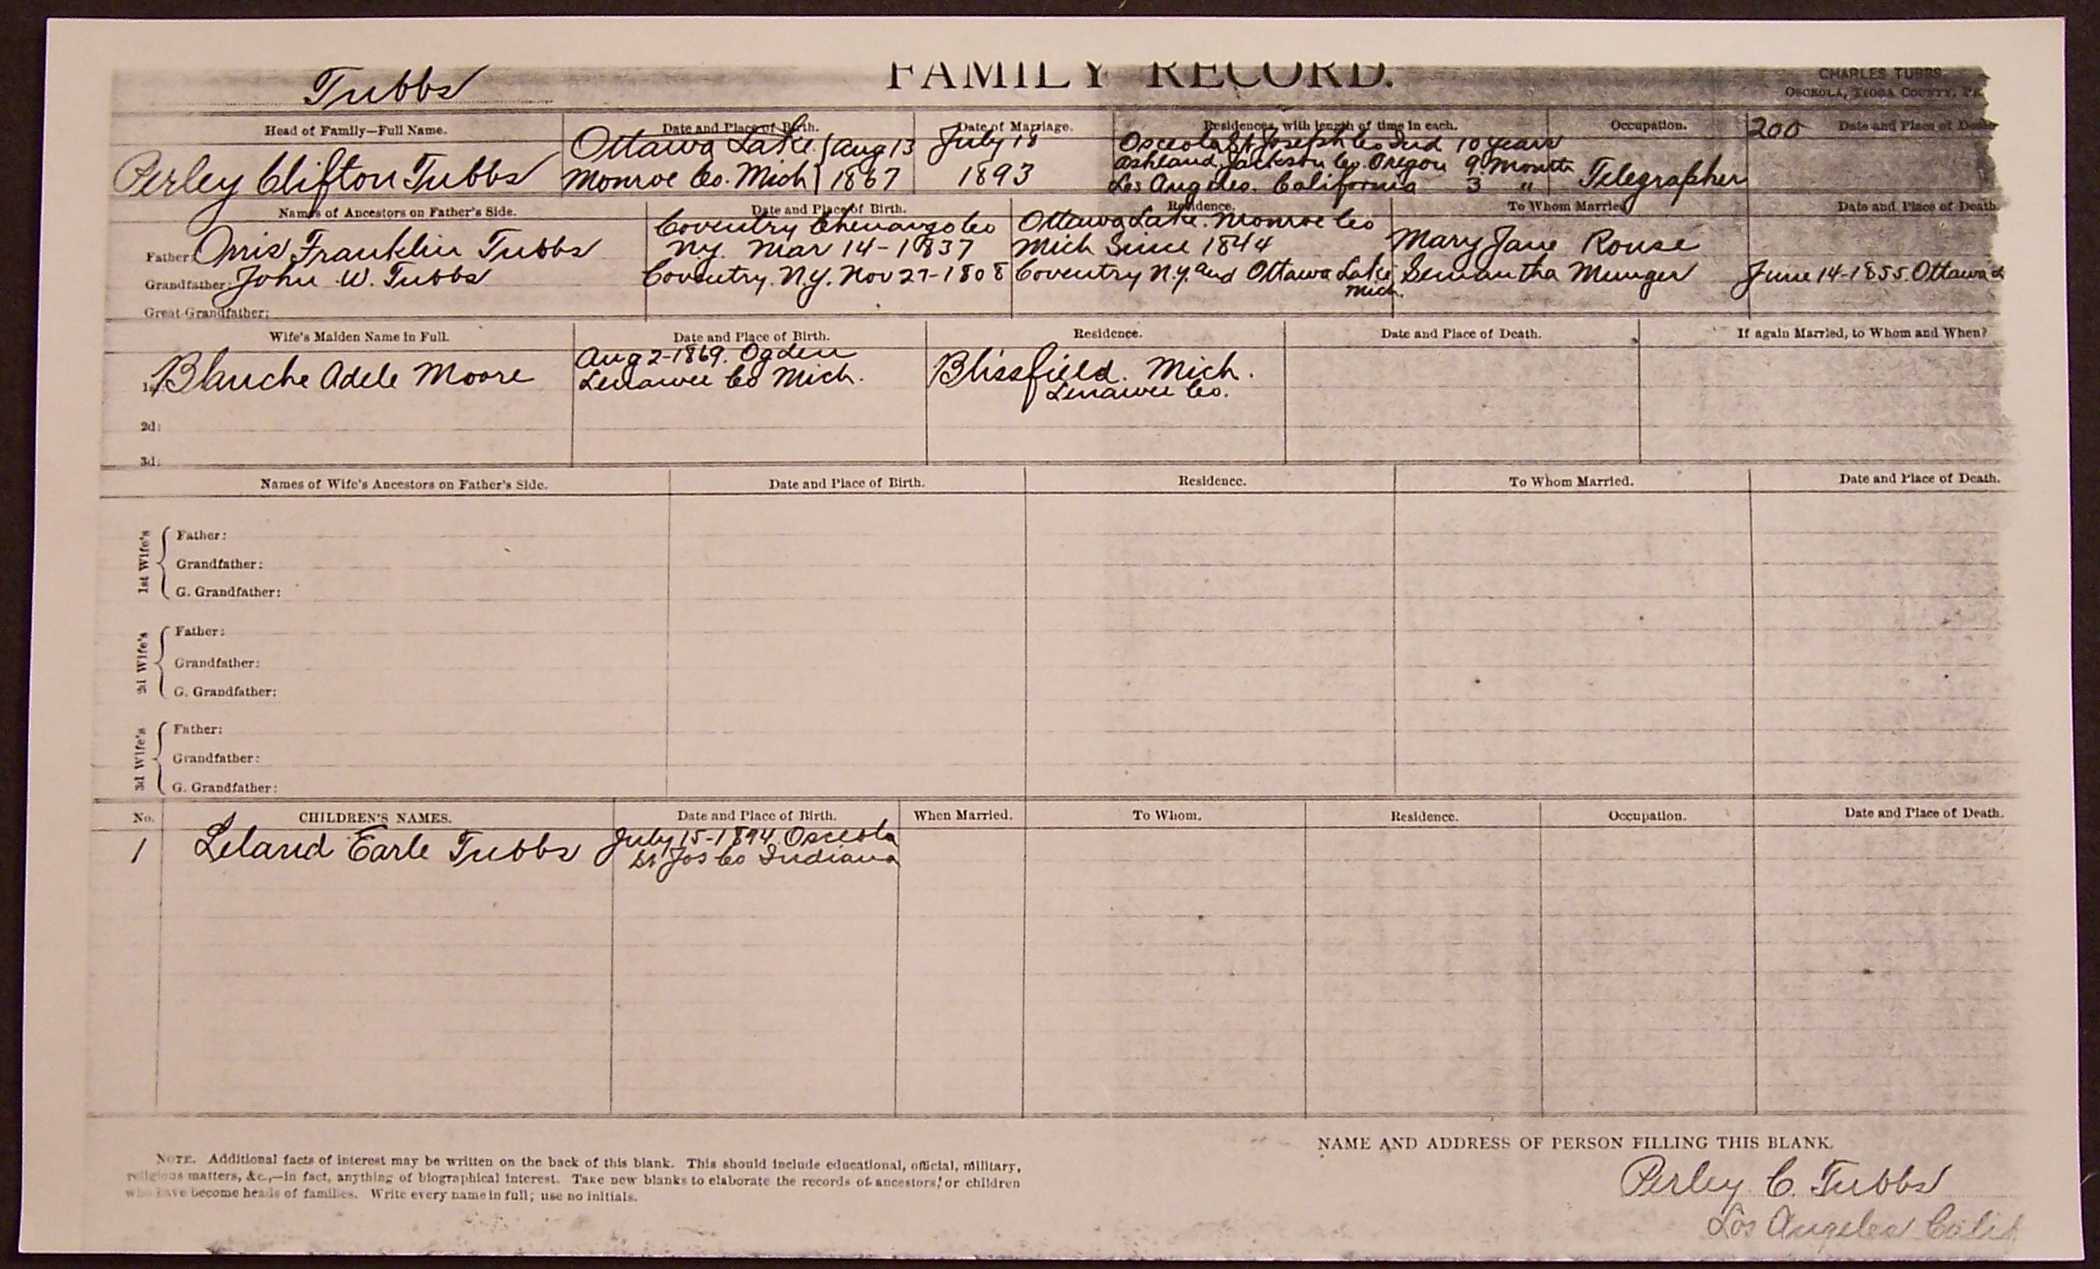 Tubbs
FAMILY RECORD.
CHARLES TUBBS,
OSCEOLA, TIOGA COUNTY, PA.
Head of Family—Full Name. Date and Place of Birth. Date of Marriage. Residences, with length of time in each. Occupation. 200 Date and Place of Death
Perley Clifton Tubbs
Ottawa Lake Aug 13
Monroe Co. Mich 1867
July 18
1893
Osceola St Joseph Co Ind 10 years
Ashland Jackson Co. Oregon 9 months
Los Angeles. California 3 "
Telegrapher
Names of Ancestors on Father's Side. Date and Place of Birth. Residence. To Whom Married Date and Place of Death
Father: Orris Franklin Tubbs
Coventry Chenango Co
N.Y. Mar 14-1837
Ottawa Lake. Monroe Co
Mich Since 1844
Mary Jane Rouse
Grandfather: John W. Tubbs Coventry. N.Y. Nov 27-1808 Coventry N.Y. and Ottawa Lake Mich. Semantha Munger June 14-1855. Ottawa L
Great-Grandfather:
Wife's Maiden Name in Full. Date and Place of Birth. Residence. Date and Place of Death. If again Married, to Whom and When?
1st Blanche Adele Moore
Aug 2-1869. Ogden
Lenawee Co Mich.
Blissfield. Mich.
Lenawee Co.
2d:
3d:
Names of Wife's Ancestors on Father's Side. Date and Place of Birth. Residence. To Whom Married. Date and Place of Death.
1st Wife's
Father:
Grandfather:
G. Grandfather:
2d Wife's
Father:
Grandfather:
G. Grandfather:
3d Wife's
Father:
Grandfather:
G. Grandfather:
No. CHILDREN'S NAMES. Date and Place of Birth. When Married. To Whom. Residence. Occupation. Date and Place of Death.
1 Leland Earle Tubbs
July 15-1894. Osceola
St Jos Co Indiana
NOTE. Additional facts of interest may be written on the back of this blank. This should include educational, official, military,
religious matters, &c.,—in fact, anything of biographical interest. Take new blanks to elaborate the records of ancestors, or children
who have become heads of families. Write every name in full; use no initials.
NAME AND ADDRESS OF PERSON FILLING THIS BLANK.
Perley C. Tubbs
Los Angeles Calif